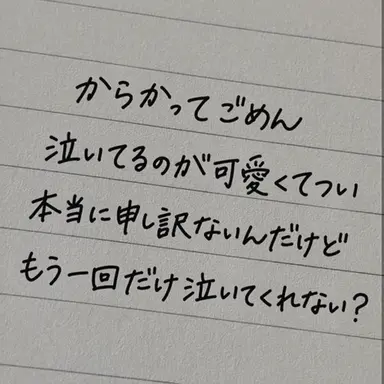 からかってごめん
泣いてるのが可愛くてつい
本当に申し訳ないんだけど
もう一回だけ泣いてくれない？